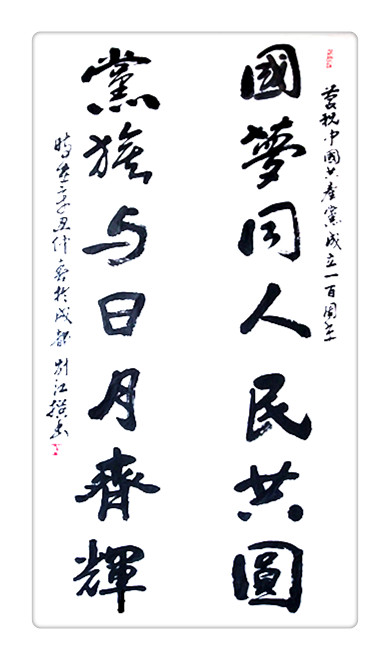 慶祝中國共產黨成立一百周年
國夢同人民共圓
黨旗与日月齊輝
時在辛丑仲夏於成都 江撰書